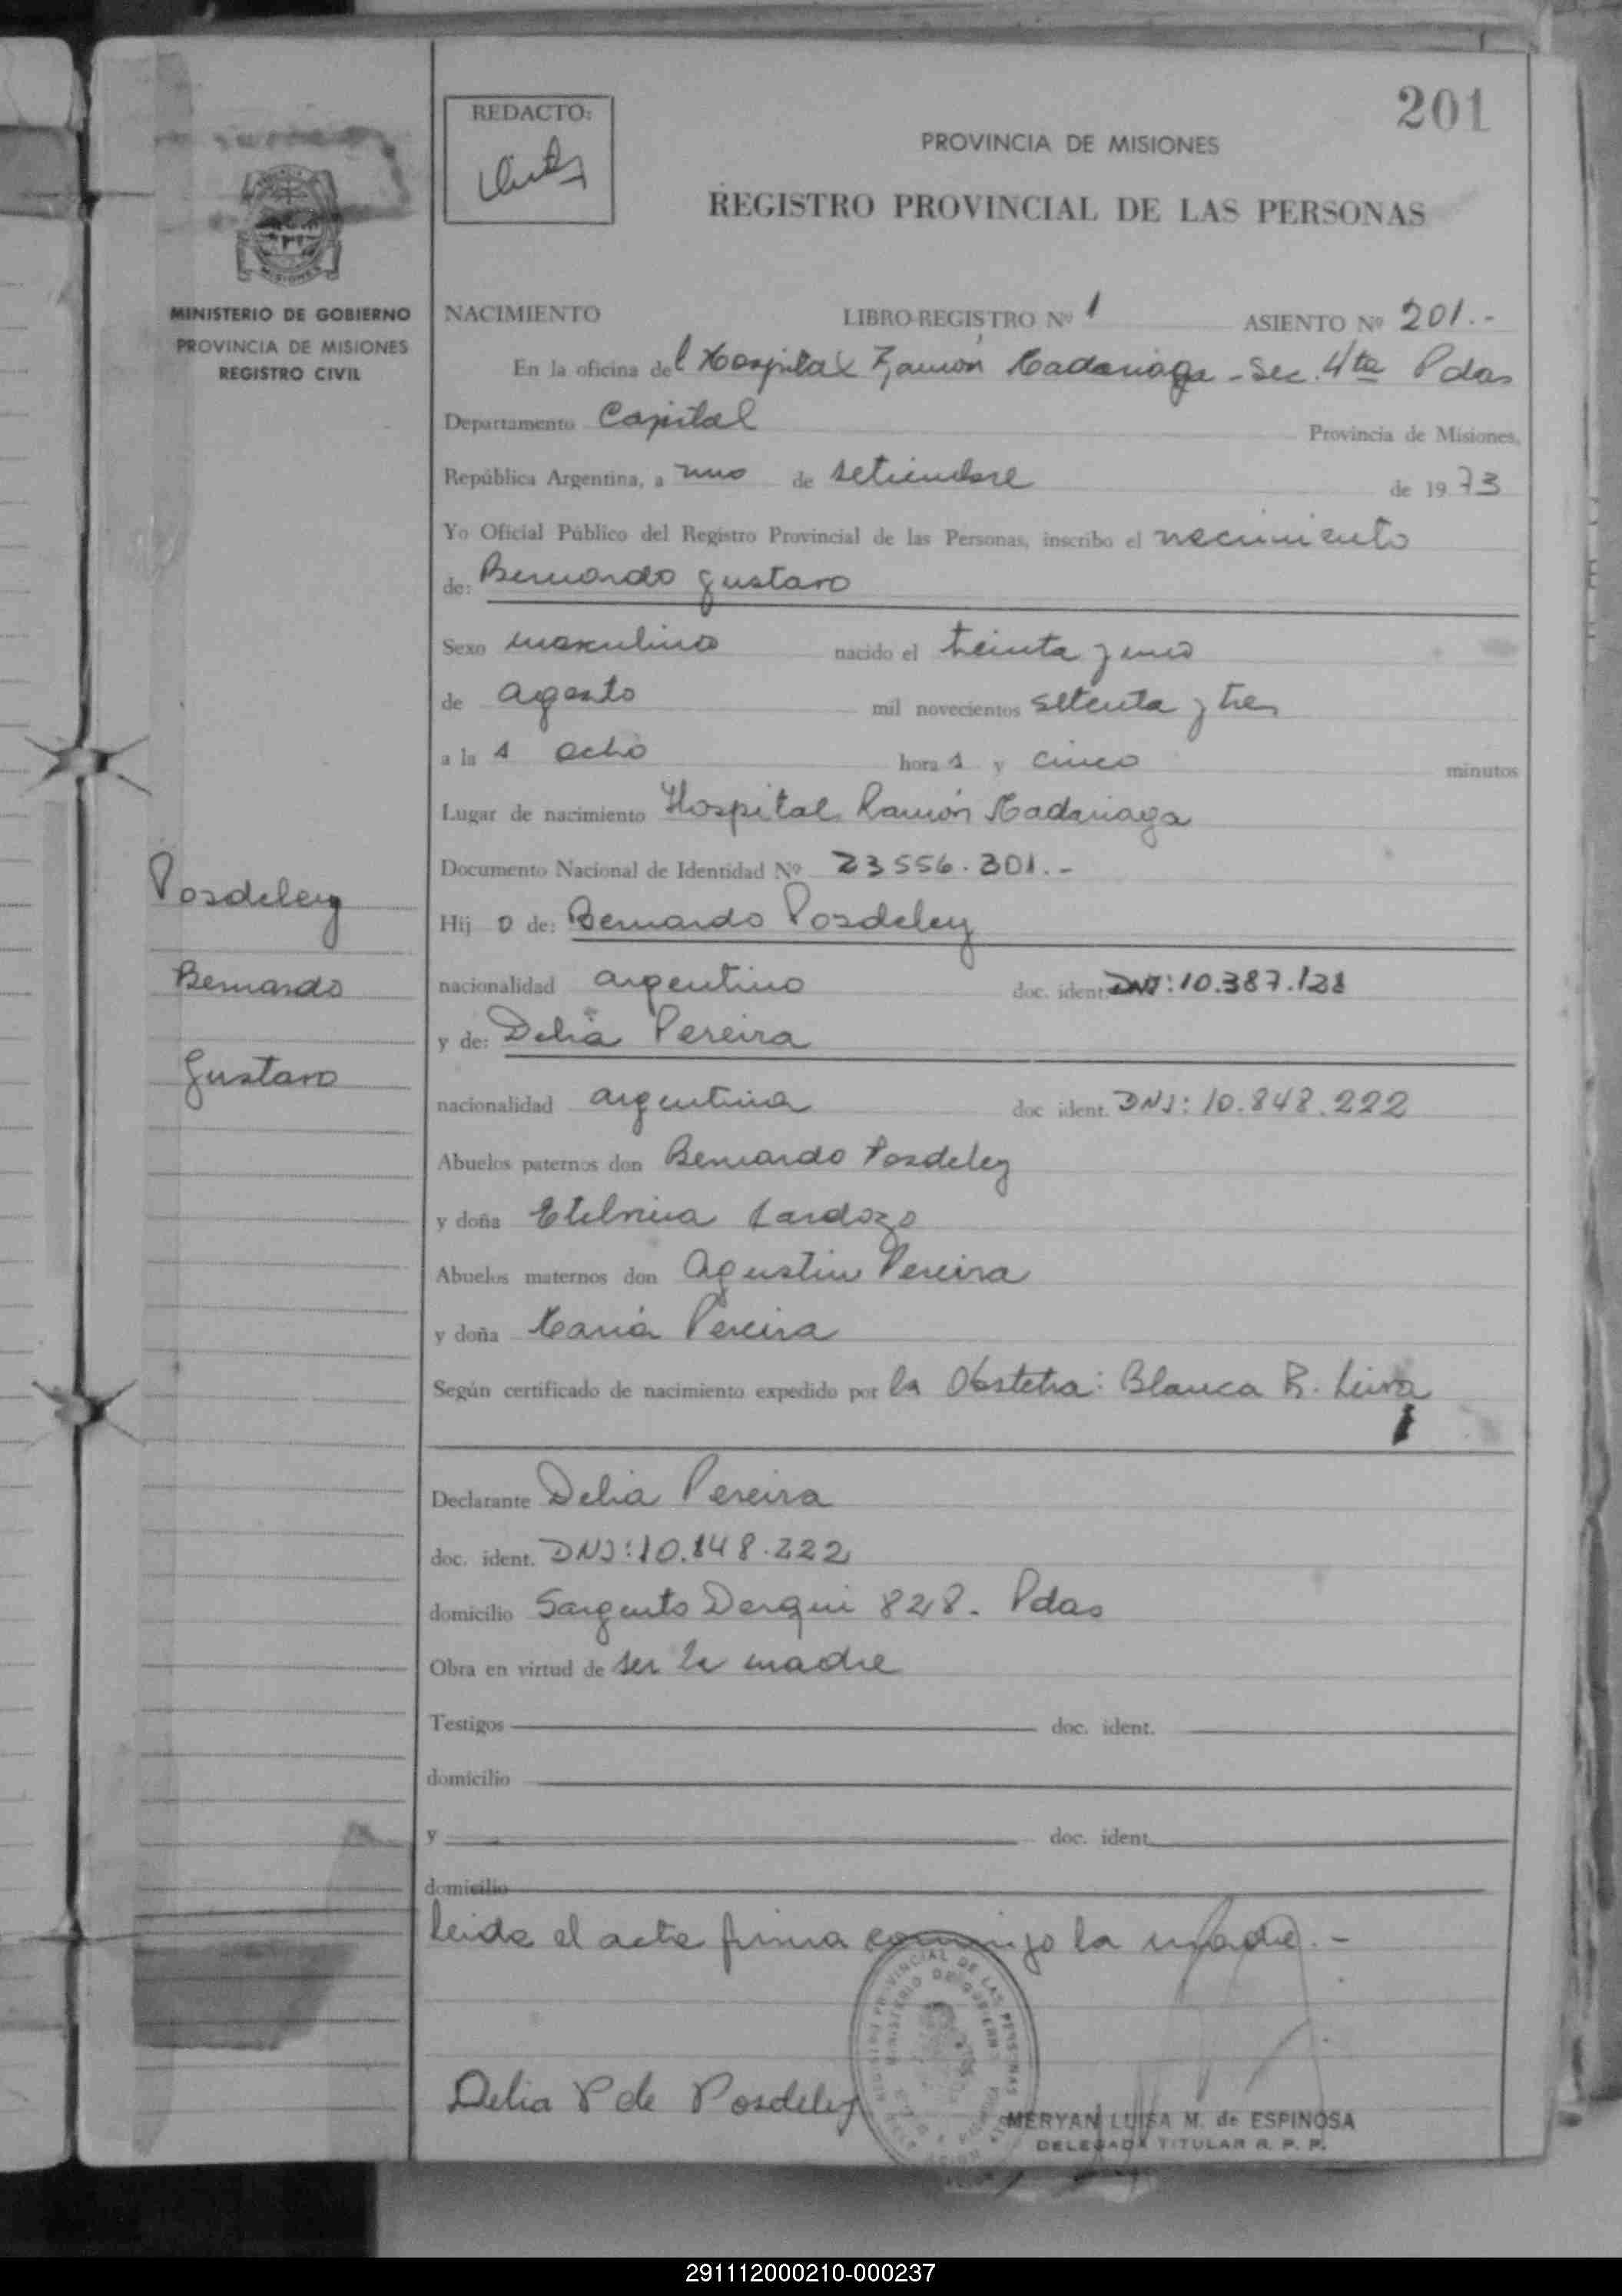 201
REDACTO:
PROVINCIA DE MISIONES
REGISTRO PROVINCIAL DE LAS PERSONAS
MISIONES
MINISTERIO DE GOBIERNO
PROVINCIA DE MISIONES
REGISTRO CIVIL
NACIMIENTO LIBRO-REGISTRO Nº 1 ASIENTO Nº 201.-
En la oficina del Hospital Ramón Madariaga - Sec. 4ta Pdas
Departamento Capital Provincia de Misiones,
República Argentina, a uno de setiembre de 1973
Yo Oficial Público del Registro Provincial de las Personas, inscribo el nacimiento
de: Bernardo Gustavo
Sexo masculino nacido el treinta y uno
de agosto mil novecientos setenta y tres
a las ocho horas y cinco minutos
Lugar de nacimiento Hospital Ramón Madariaga
Documento Nacional de Identidad Nº 23556.301.-
Posdeley
Bernardo
Gustavo
Hijo de: Bernardo Posdeley
nacionalidad argentino doc. ident. DNI: 10.387.128
y de: Delia Pereira
nacionalidad argentina doc ident. DNI: 10.848.222
Abuelos paternos don Bernardo Posdeley
y doña Etelvina Cardozo
Abuelos maternos don Agustin Pereira
y doña María Pereira
Según certificado de nacimiento expedido por la Obstetra: Blanca R. Leiva
Declarante Delia Pereira
doc. ident. DNI: 10.848.222
domicilio Sargento Derqui 828. Pdas
Obra en virtud de ser la madre
Testigos doc. ident.
domicilio
y doc. ident.
domicilio
leida el acta firma conmigo la madre.-
Delia P de Posdeley
MERYAN LUISA M. de ESPINOSA
DELEGADA TITULAR R. P. P.
291112000210-000237